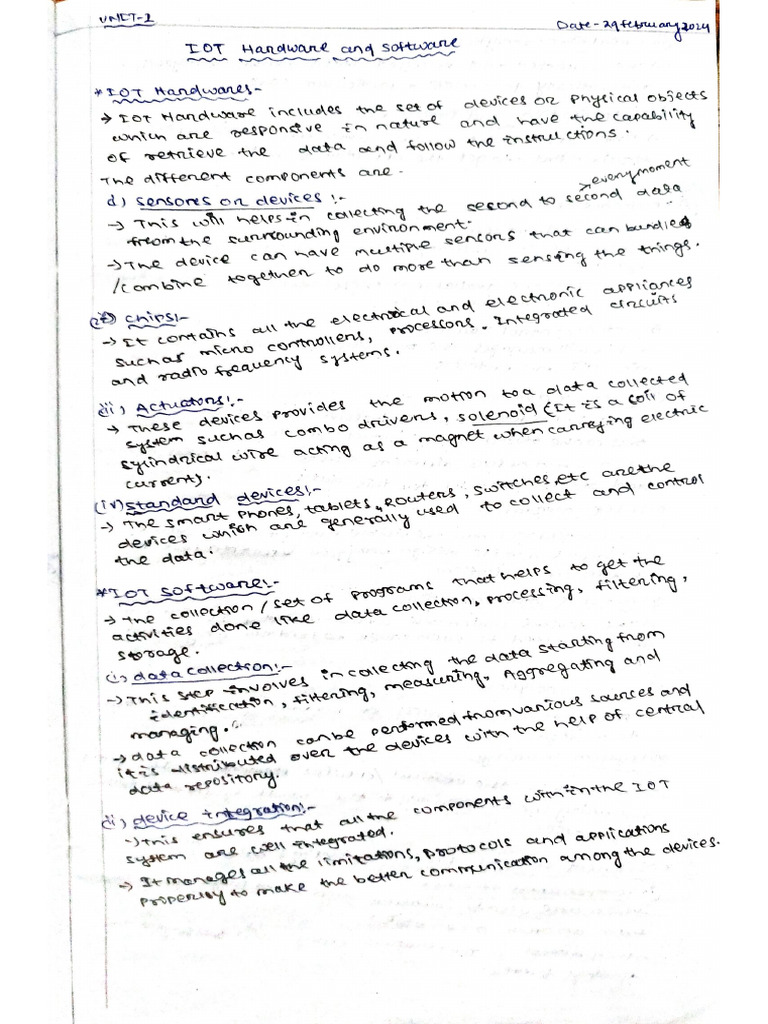 UNIT-2
Date-29february2024
IOT Hardware and software
*IOT Hardwares-
→ IOT Hardware includes the set of devices or physical objects
which are responsive in nature and have the capability
of retrieve the data and follow the instructions.
The different components are.
i) sensores or devices :-
→ This will helps in collecting the second to second data
>every moment
from the surrounding environment.
→ The device can have multiple sensors that can bundled
/combine together to do more than sensing the things.
(ii) chips:-
→ It contains all the electrical and electronic appliances
such as micro controllers, processors. Integrated circuits
and radio frequency systems.
iii) Actuators:-
→ These devices provides the motion to a data collected
system such as combo drivers, solenoid (It is a coil of
sylindrical wire acting as a magnet when carrying electric
current).
(iv) standard devices:-
→ The smart phones, tablets, Routers, switches, etc are the
devices which are generally used to collect and control
the data.
*IOT software:-
→ The collection/set of programs that helps to get the
activities done like data collection, processing, filtering,
storage.
(i) data collection:-
→ This step involves in collecting the data starting from
identification, filtering, measuring, Aggregating and
managing.
→ data collection can be performed from various sources and
it is distributed over the devices with the help of central
data repository.
(ii) device integration:-
→ This ensures that all the components within the IOT
system are well integrated.
→ It manages all the limitations, protocols and applications
properly to make the better communication among the devices.